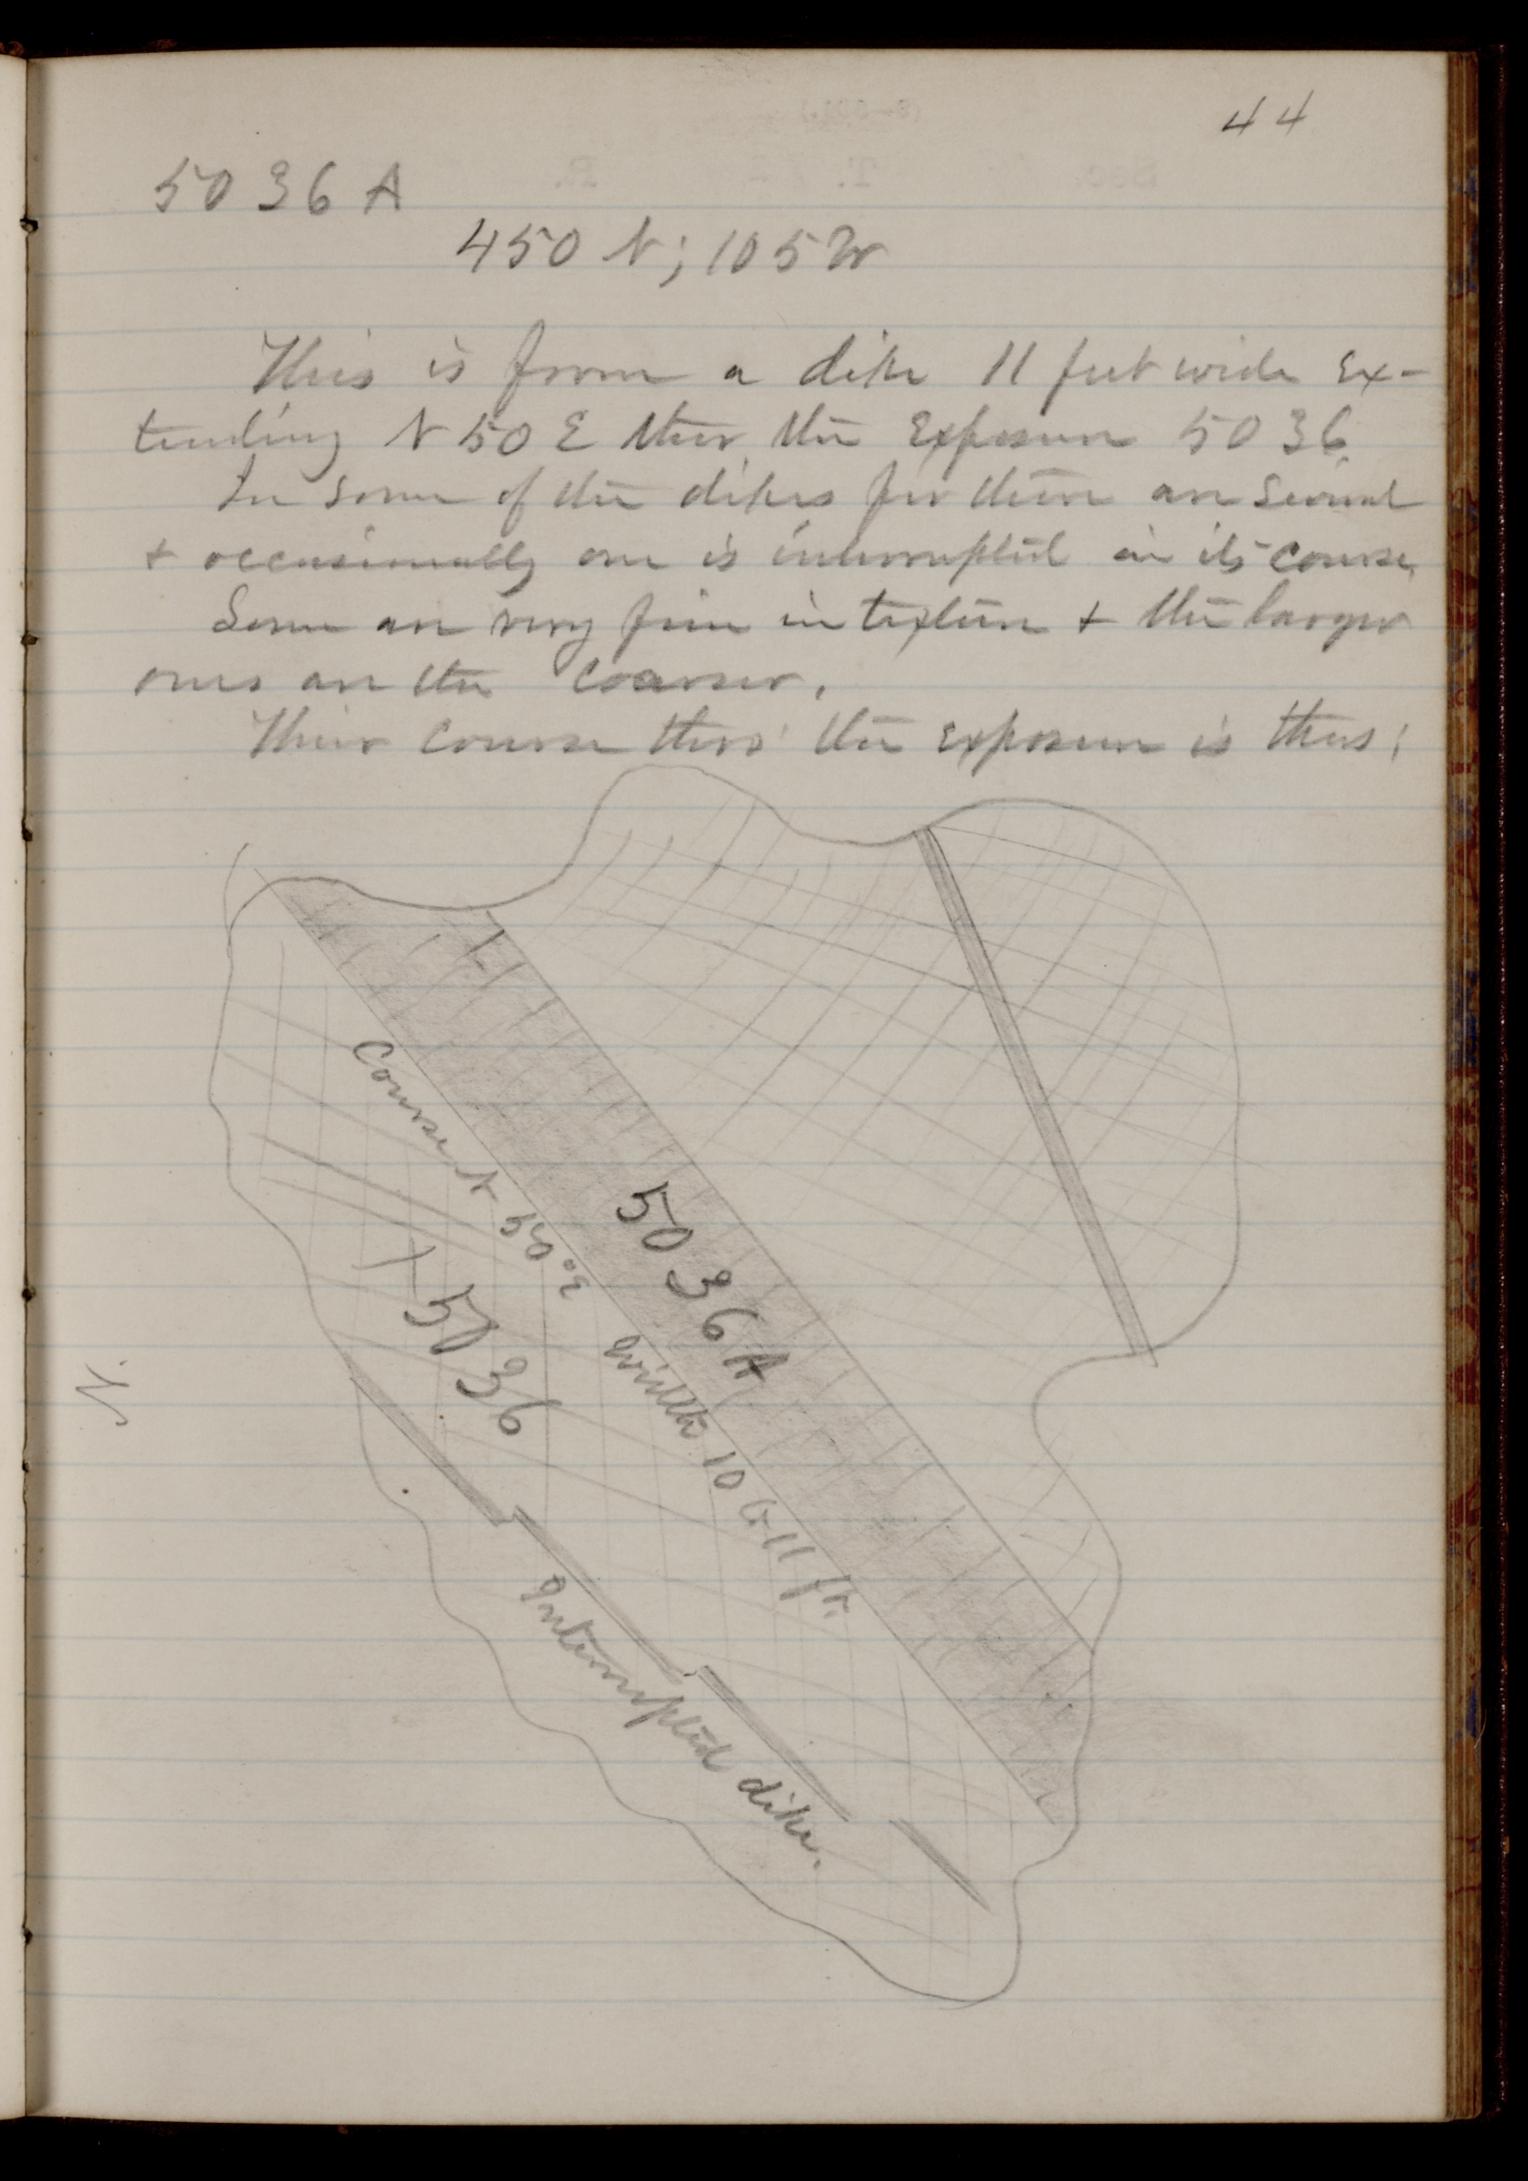 44
5036 A
450 N; 105 W
This is from a dike 11 feet wide ex-
tending N 50 E thro the exposure 5036
In some of the dikes for there are several
+ occasionally one is interrupted in its course,
Some are very fine in texture + the larger
ones are the coarser.
Their course thro' the exposure is thus;
Course N 50° E
5036 A
width 10 to 11 ft.
5036
N.
Interrupted dike.